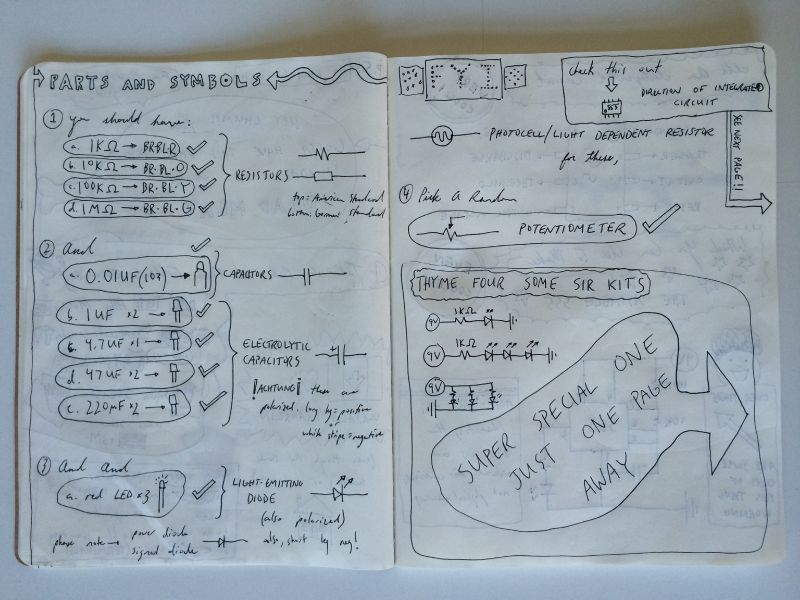 PARTS AND SYMBOLS
1 you should have:
a. 1KΩ → BR·BL·R
b. 10KΩ → BR·BL·O
c. 100KΩ → BR·BL·Y
d. 1MΩ → BR·BL·G
RESISTORS
top = American Standard
bottom: German Standard
2 And
a. 0.01UF (103) →
CAPACITORS
b. 1UF x2 →
4.7UF x1 →
d. 47UF x2 →
220µF x2 →
ELECTROLYTIC
CAPACITORS
¡ACHTUNG! these are
polarized. long leg = positive
or
white stripe = negative
3 And And
a. red LED x3
LIGHT-EMITTING
DIODE
(also polarized)
also, short leg neg!
please note → power diode
signal diode
FYI
check this out
555
DIRECTION OF INTEGRATED
CIRCUIT
SEE NEXT PAGE!!
PHOTOCELL/LIGHT DEPENDENT RESISTOR
for these,
4 Pick A Random
POTENTIOMETER
THYME FOUR SOME SIR KITS
9V 1KΩ
9V 1KΩ
9V
SUPER SPECIAL ONE
JUST ONE PAGE
AWAY